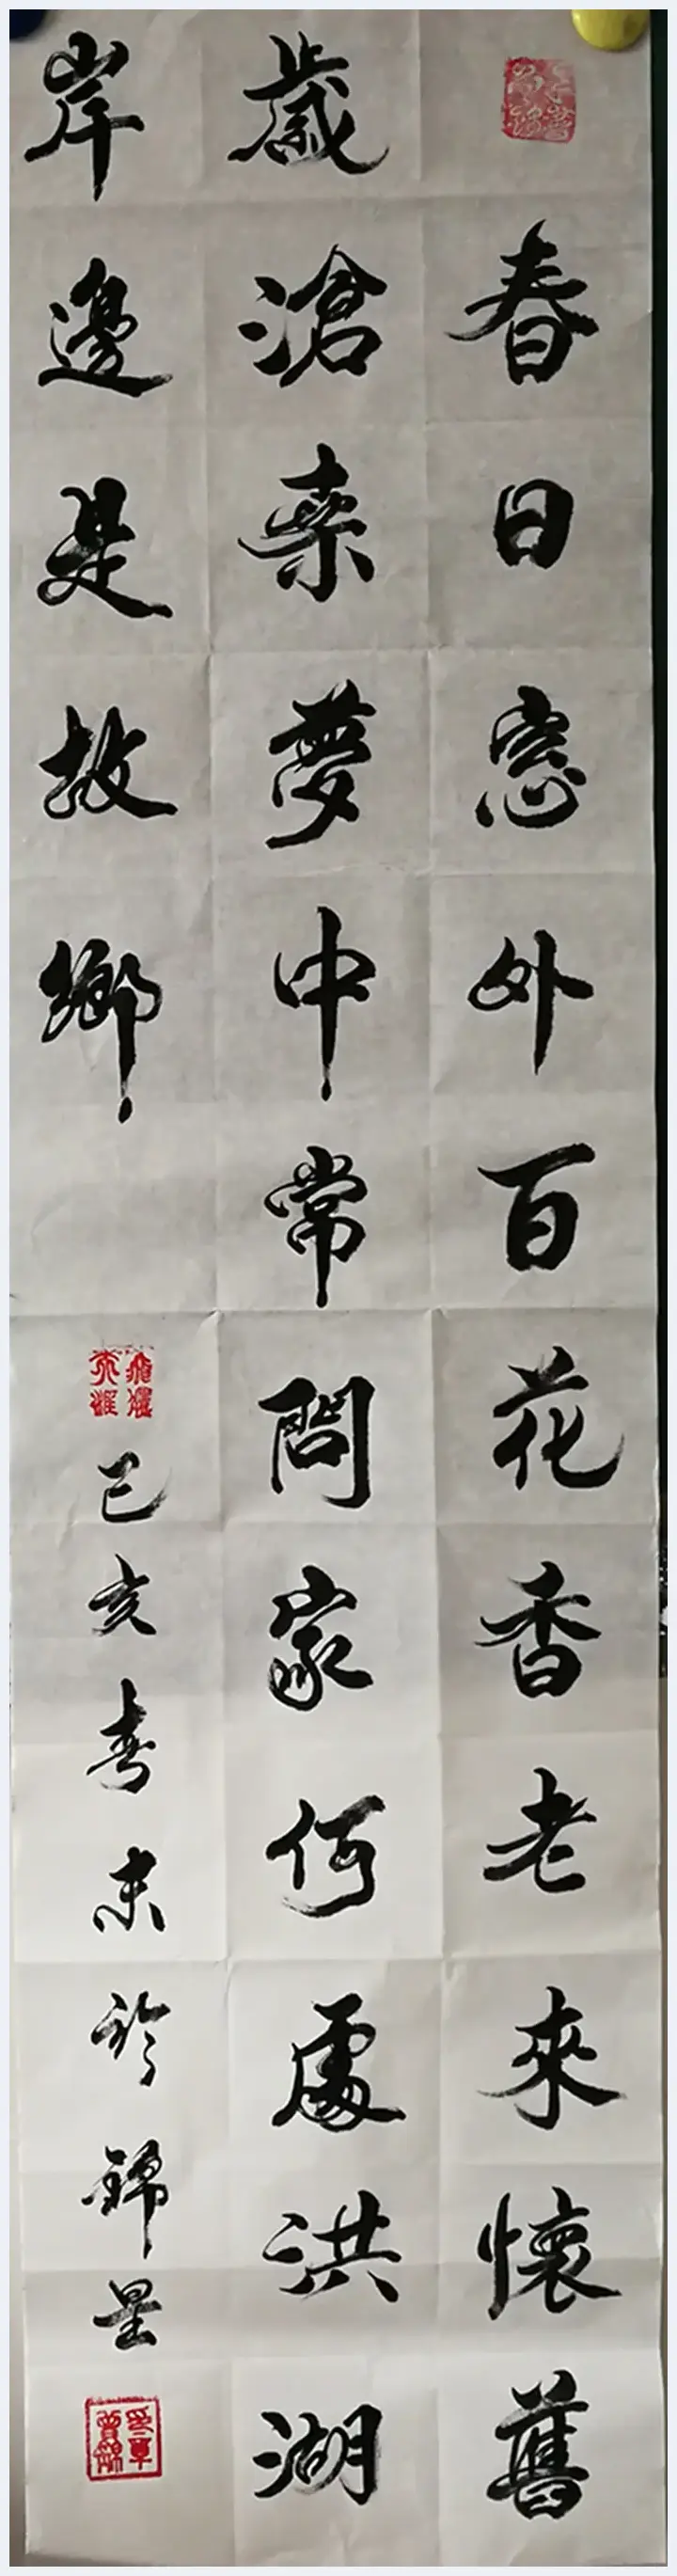 春日窓外百花香老來懷舊
歲滄桑夢中常問家何處洪湖
岸邊是故鄉
己亥春末於錦星